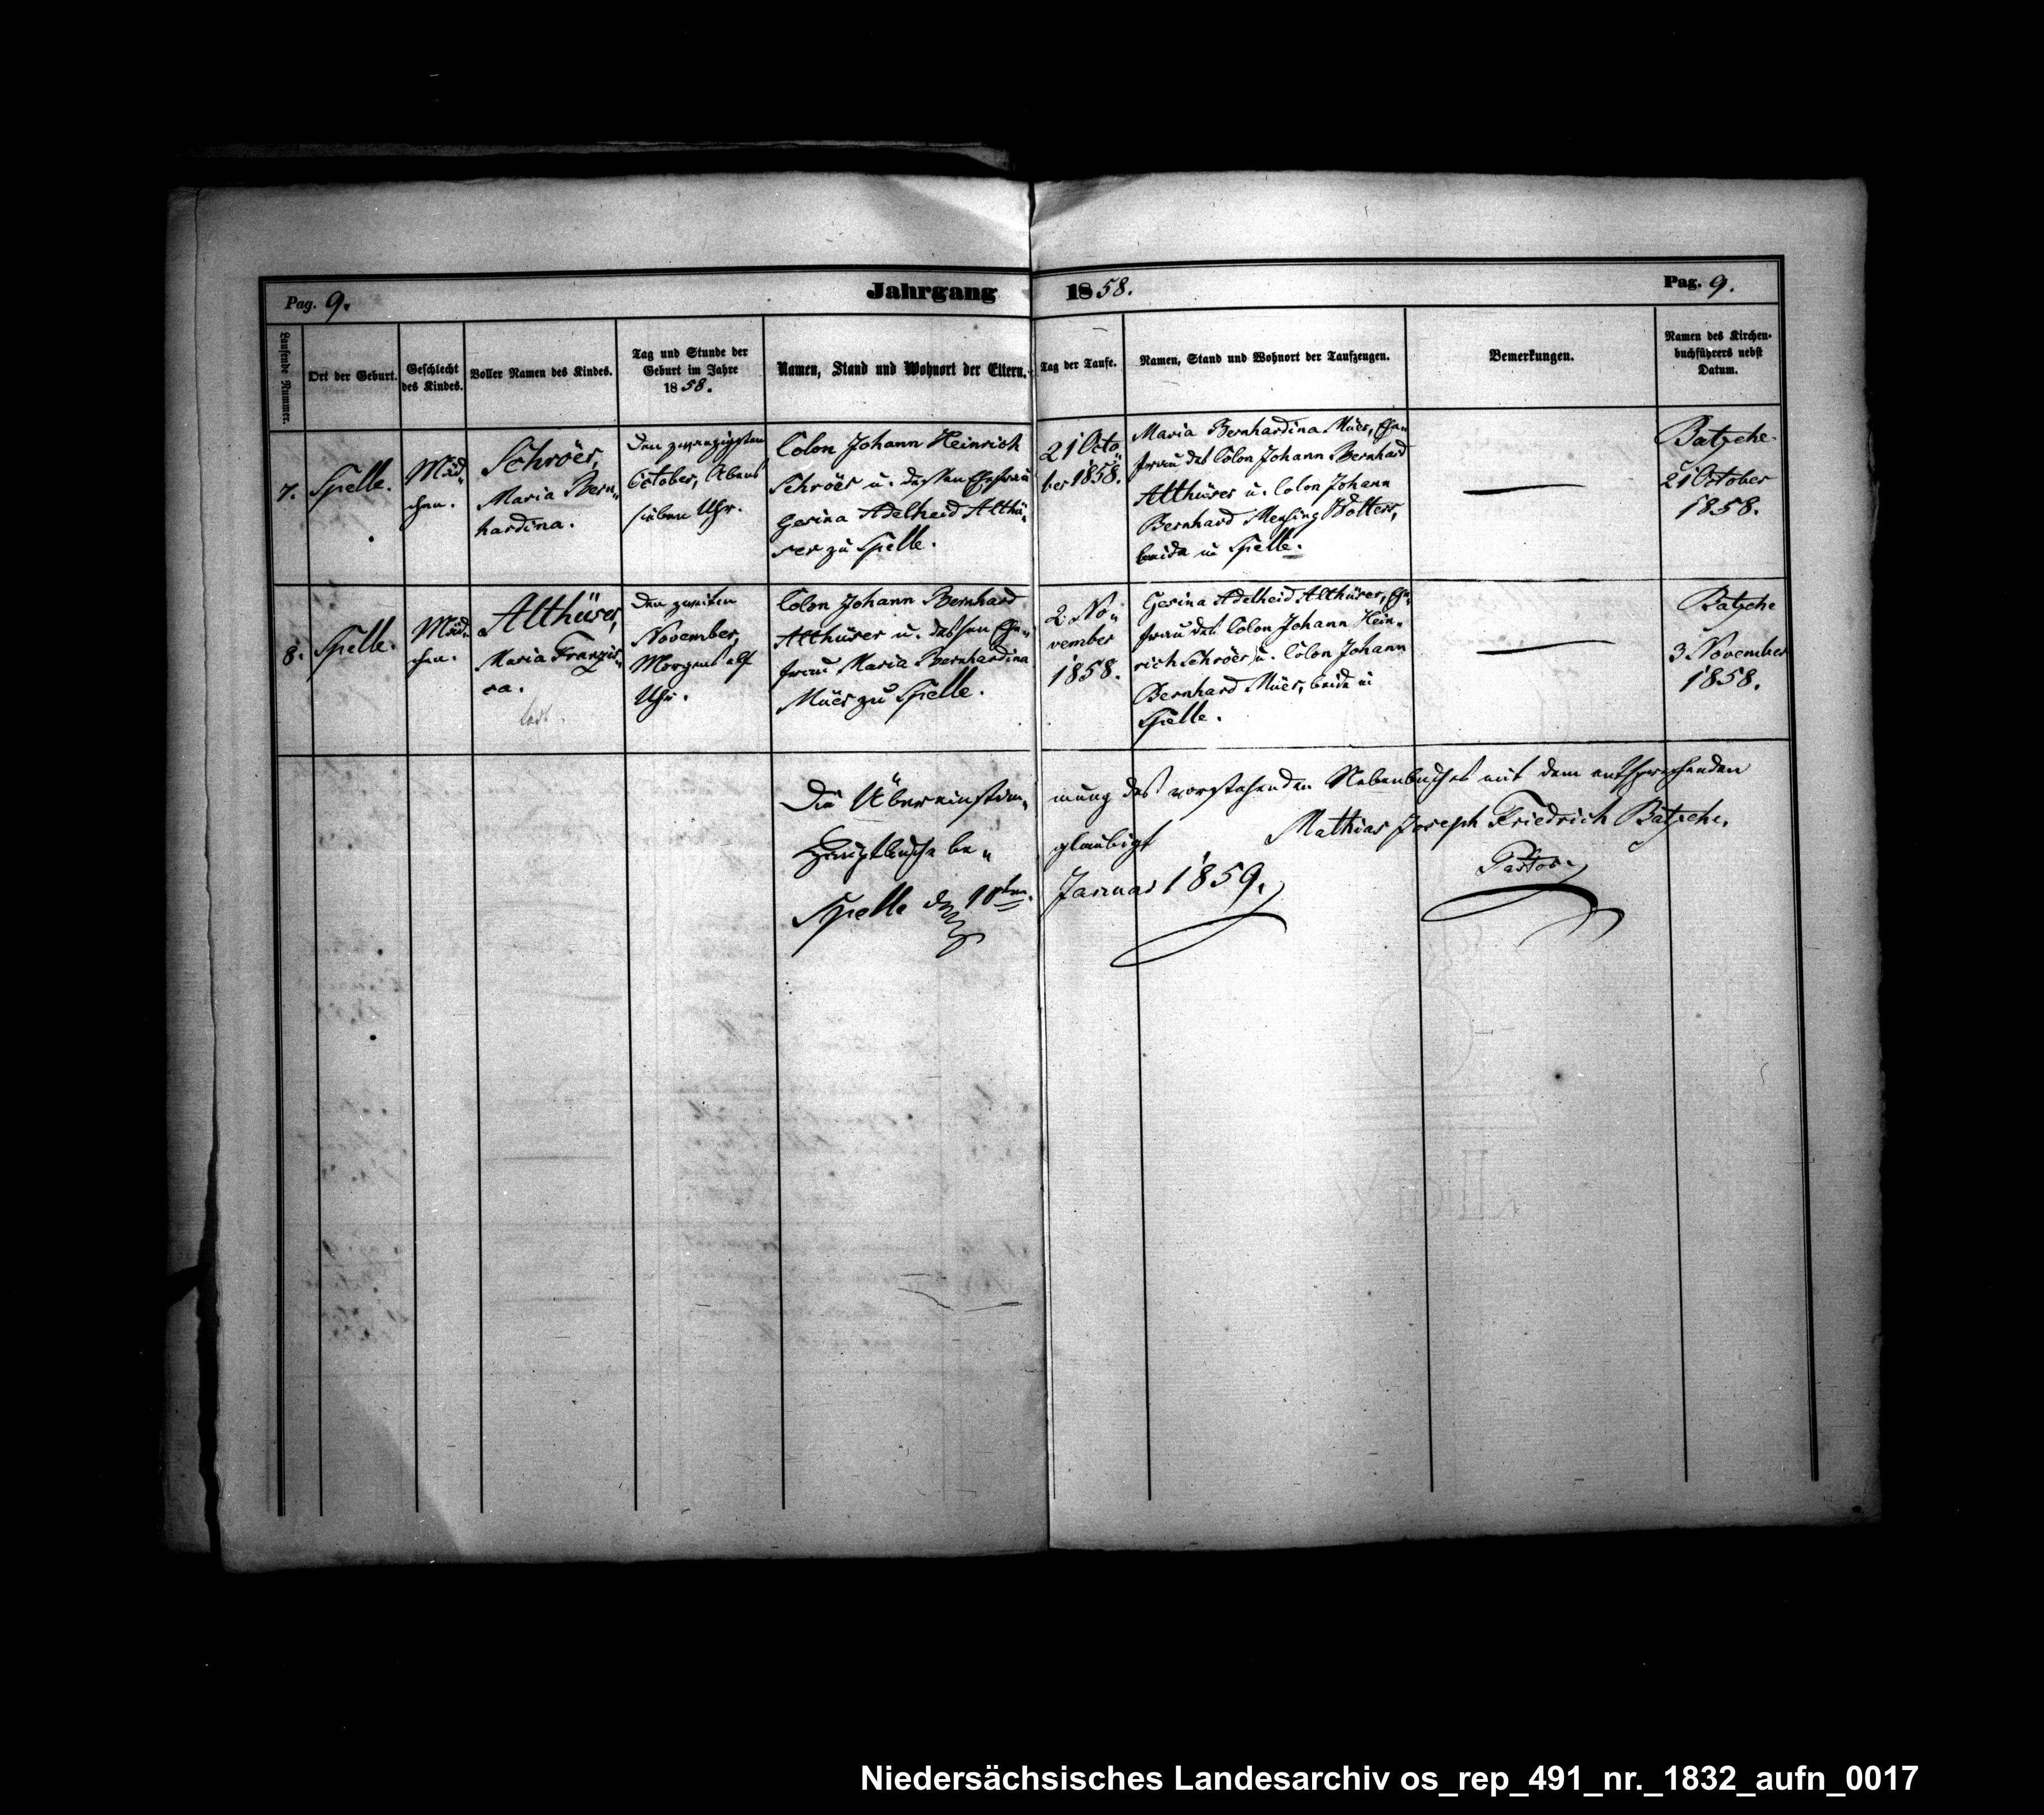 Pag. 9.
Jahrgang 1858.
Pag. 9.
Laufende Nummer.
Ort der Geburt.
Geschlecht
des Kindes.
Voller Namen des Kindes.
Tag und Stunde der
Geburt im Jahre
1858.
Namen, Stand und Wohnort der Eltern.
Tag der Taufe.
Namen, Stand und Wohnort der Taufzeugen.
Bemerkungen.
Namen des Kirchen-
buchführers nebst
Datum.
7.
Spelle.
Mäd-
chen.
Schroër,
Maria Bern-
hardina.
Den zwanzigsten
October, Abens
sieben Uhr.
Colon Johann Heinrich
Schroër u. dessen Ehefrau
Gesina Adelheid Althü-
ser zu Spelle.
21 Octo-
ber 1858.
Maria Bernhardina Müer, Ehe-
frau des Colon Johann Bernhard
Althüser u. Colon Johann
Bernhard Wolters,
beide in Spelle.
Batzche
21 October
1858.
8.
Spelle.
Mäd-
chen.
Althüser,
Maria Franzis-
ca.
Den zweiten
November,
Morgens elf
Uhr.
Colon Johann Bernhard
Althüser u. dessen Ehe-
frau Maria Bernhardina
Müer zu Spelle.
2 No-
vember
1858.
Gesina Adelheid Althüser, Ehe-
frau des Colon Johann Hein-
rich Schroër, u. Colon Johann
Bernhard Müer, beide in
Spelle.
Batzche
3 November
1858.
Die Übereinstim- mung des vorstehenden Nebenbuches mit dem entsprechenden
Hauptbuche be- glaubigt
Mathias Joseph Friedrich Batzche,
Pastor.
Spelle den 10ten Januar 1859.
Niedersächsisches Landesarchiv os_rep_491_nr._1832_aufn_0017